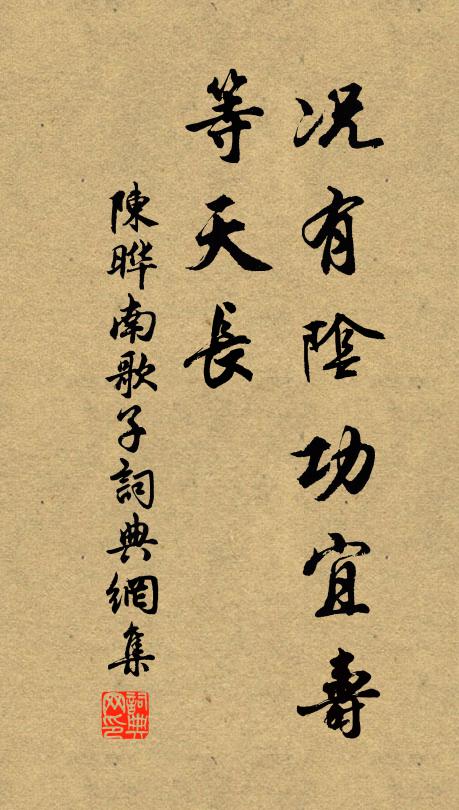 况有陰功宜壽
等天長
陳晔南歌子詞典網集
詞典网印